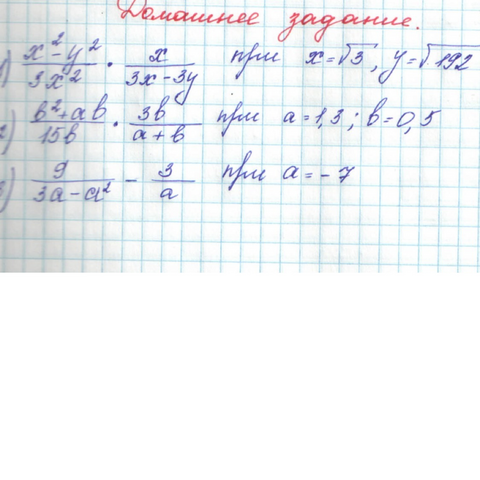 Домашнее задание.
1) \frac{x^2-y^2}{3x^2} \cdot \frac{x}{3x-3y} при x=\sqrt{3}, y=\sqrt{192}
2) \frac{b^2+ab}{15b} \cdot \frac{3b}{a+b} при a=1,3; b=0,5
3) \frac{9}{3a-a^2} - \frac{3}{a} при a=-7